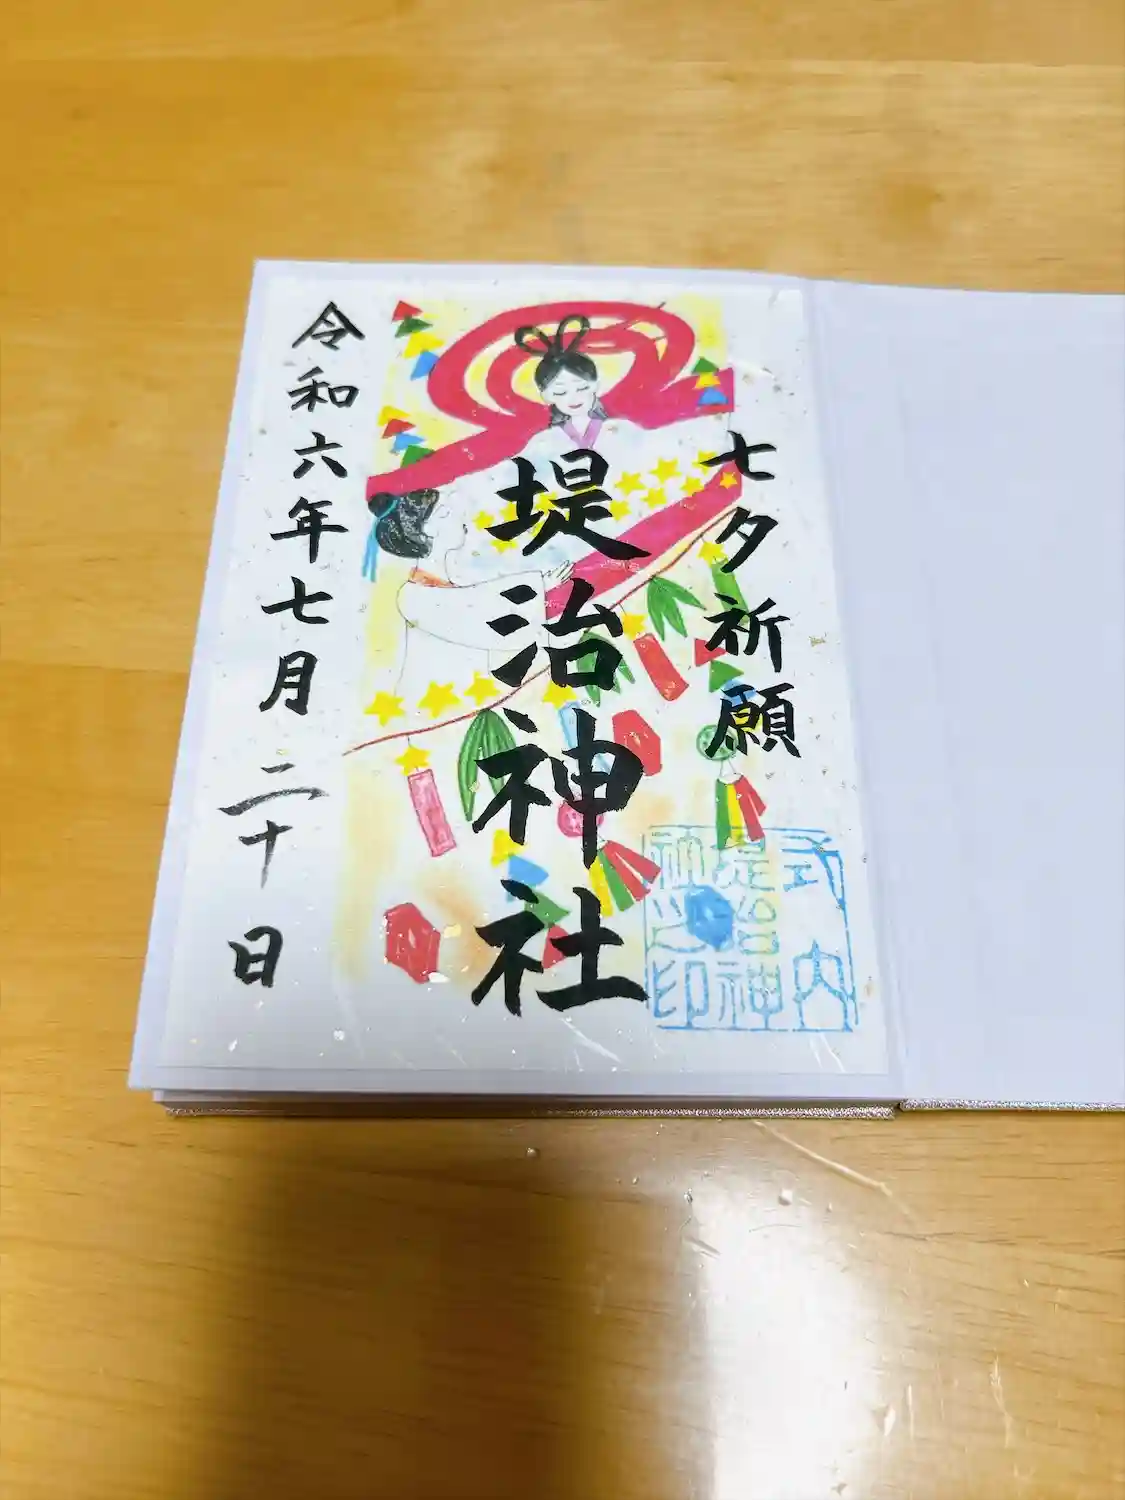 七夕祈願
堤治神社
令和六年七月二十日
式内
堤治神
社之印